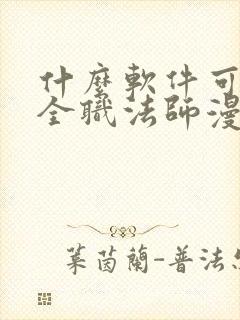 什麼軟件可
全職法師漫
葉茵蘭-普法